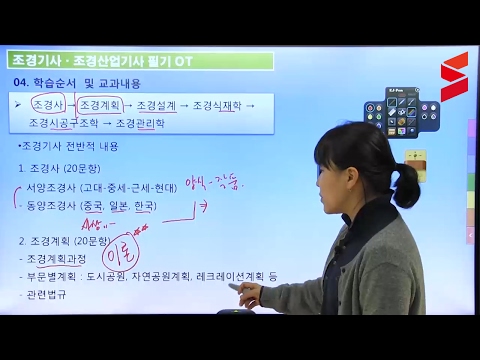 조경기사 · 조경산업기사 필기 OT
04. 학습순서 및 교과내용
➢ 조경사 → 조경계획 → 조경설계 → 조경식재학 →
조경시공구조학 → 조경관리학
•조경기사 전반적 내용
1. 조경사 (20문항)
- 서양조경사 (고대-중세-근세-현대) 양식 - 작품.
- 동양조경사 (중국, 일본, 한국)
2. 조경계획 (20문항) 이론
- 조경계획과정
- 부문별계획 : 도시공원, 자연공원계획, 레크레이션계획 등
- 관련법규